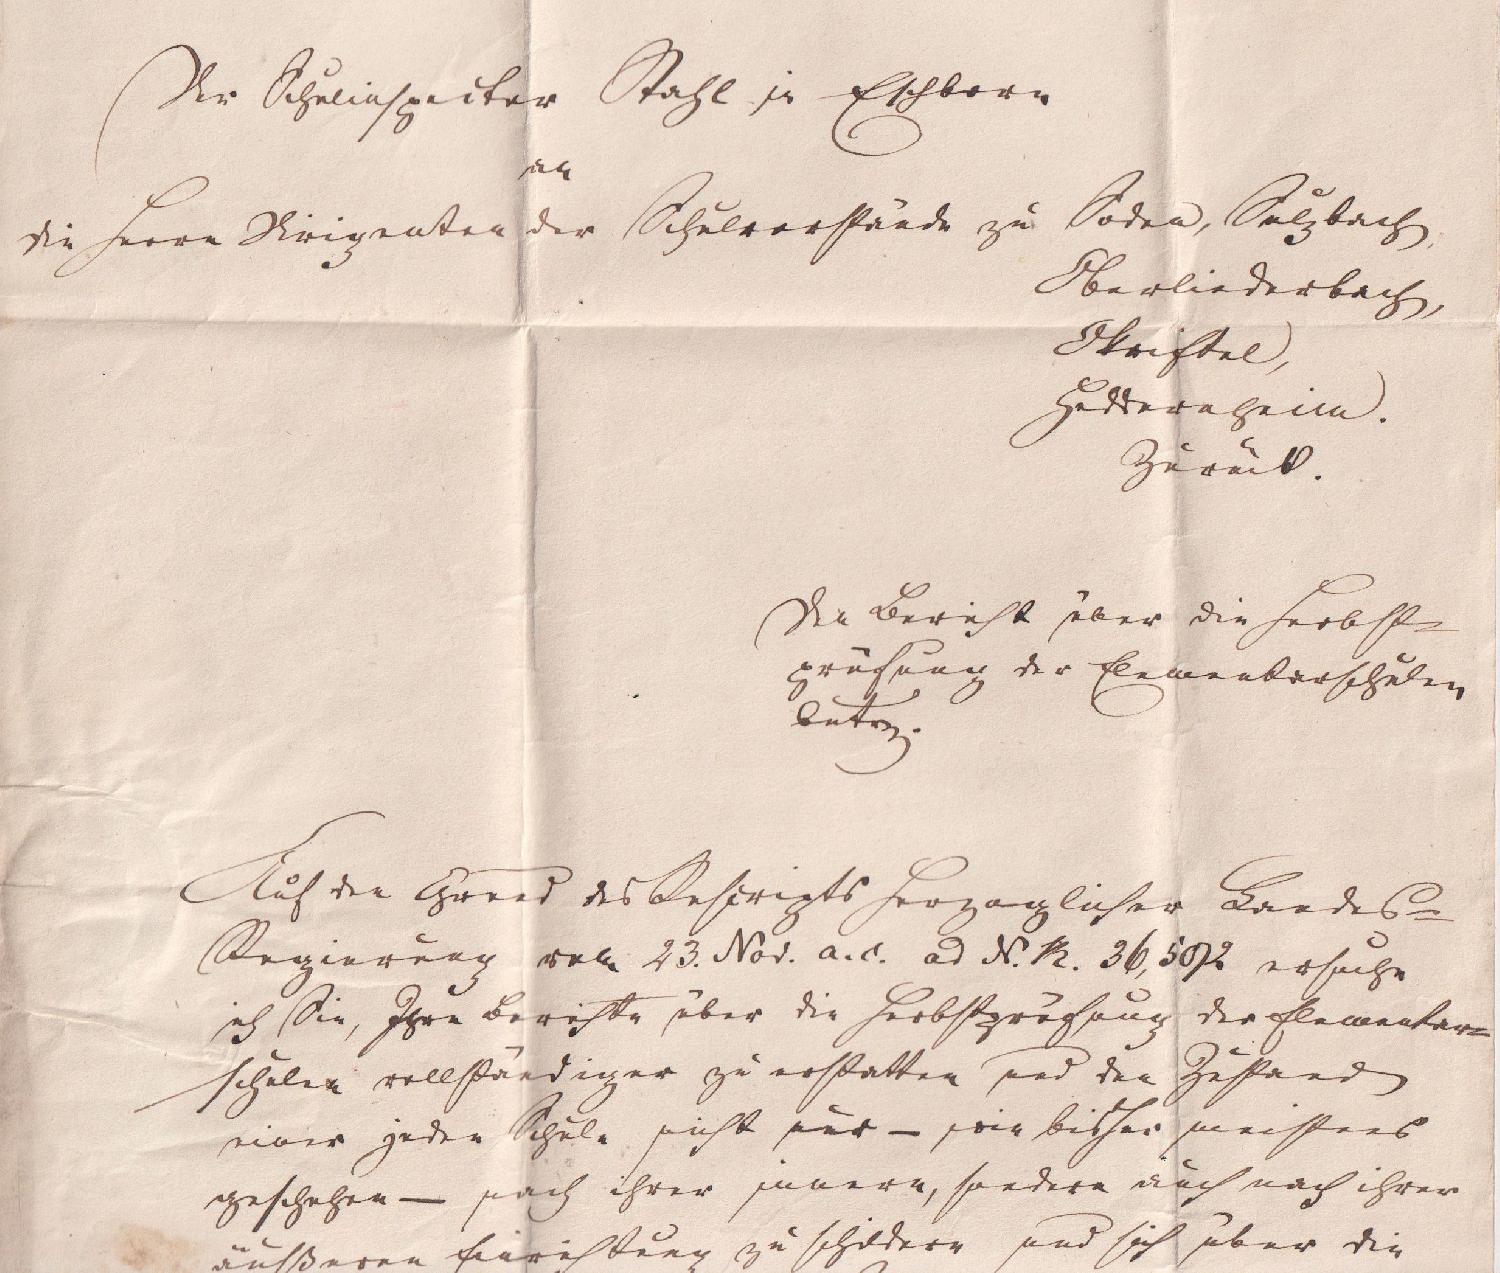 Der Schulinspector Stahl in Eschborn
an
die Herrn Dirigenten der Schulvorstände zu Soden, Sulzbach,
Oberliederbach,
Okriftel,
Heddernheim.
Zurück.
Den Bericht über die Herbst-
prüfung der Elementarschulen
betr.
Auf den Grund des Rescripts Herzoglicher Landes-
Regierung vom 23. Nov. a.c. ad N. R. 36,592 ersuche
ich Sie, Ihre Berichte über die Herbstprüfung der Elementar-
schulen vollständiger zu erstatten und den Zustand
einer jeden Schule nicht nur – wie bisher meistens
geschehen – nach ihrer innern, sondern auch nach ihrer
äußeren Einrichtung zu schildern und sich über die